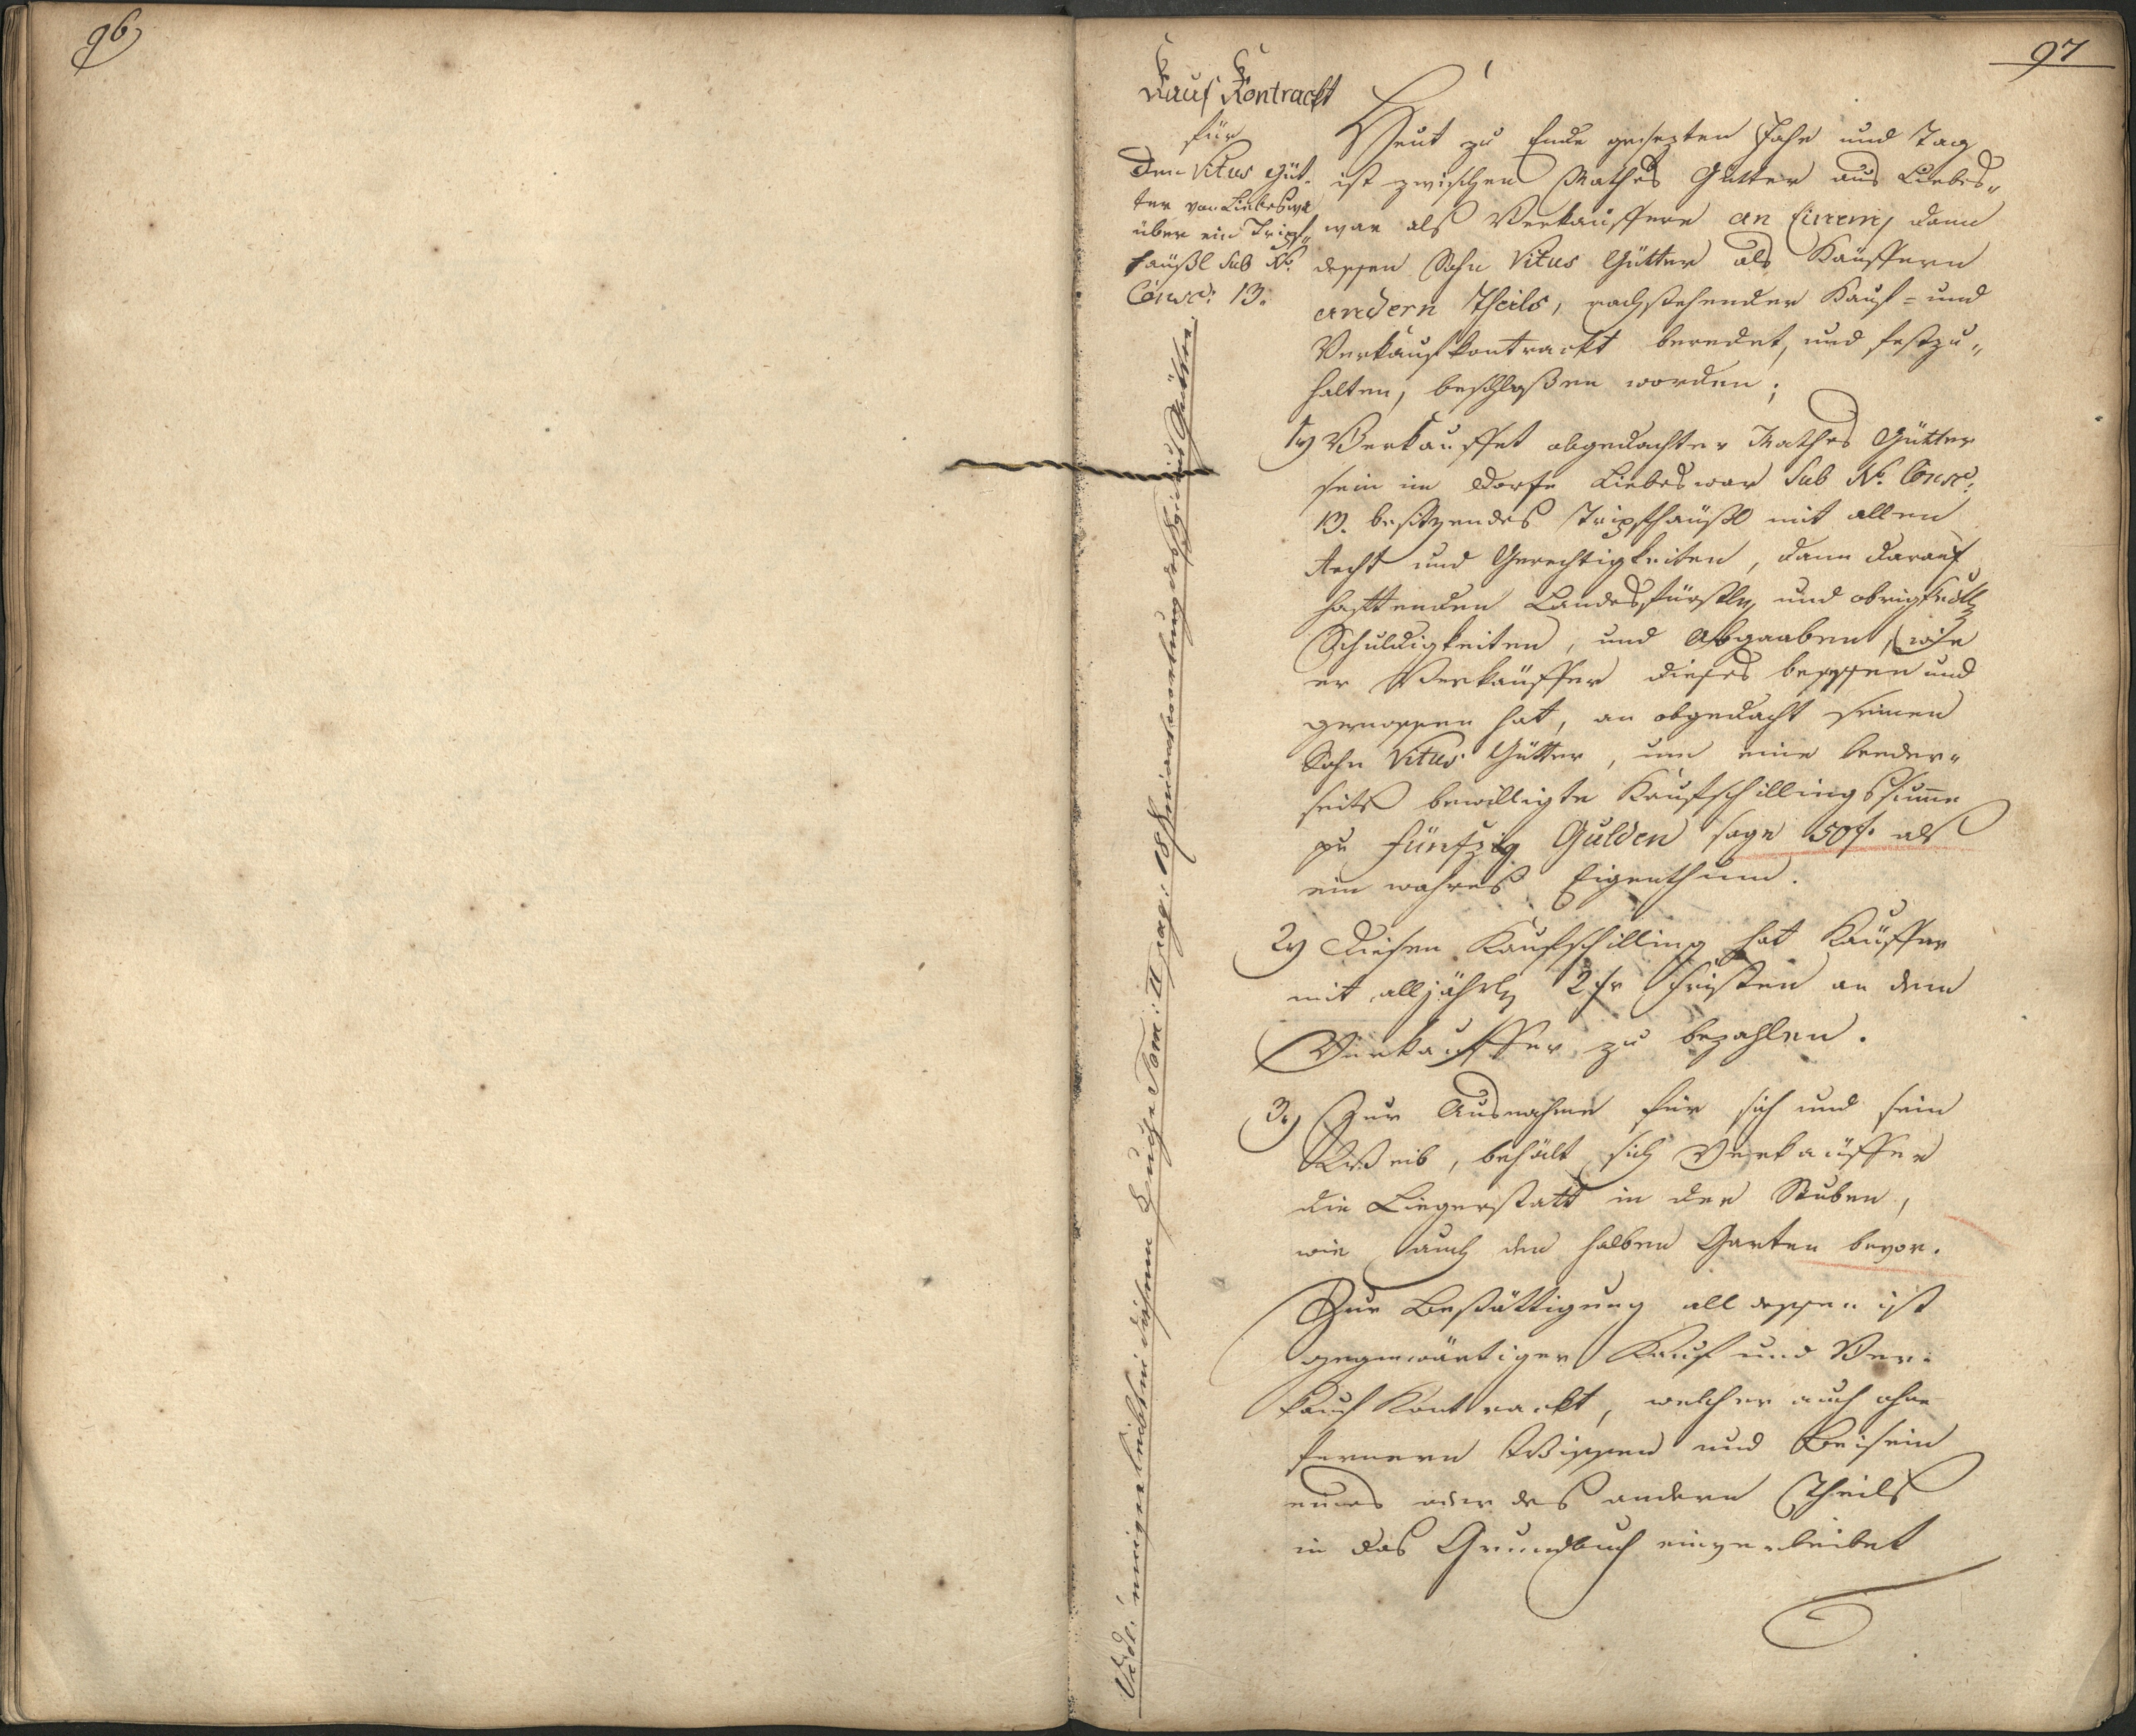 96
97
Kauf Kontrackt
für
Den Vitus Güt-
ter von Liebeswar
über ein Tripf„
häußl Sub No.
Consc: 13.
Heut zu Ende gesezten Jahr und Tag
ist zwischen Mathes Gütter aus Liebes„
war als Verkauffern an Einem, dann
dessen Sohn Vitus Gütter als Käuffern
andern Theils, nachstehender Kauf- und
Verkaufkontrackt beredet, und festzu„
halten, beschloßen worden;
1) Verkauffet obgedachter Mathes Gütter
sein im Dorfe Liebeswar Sub No. Consc:
13. besitzendes Tripfhäußl mit allen
Recht und Gerechtigkeiten, dann darauf
hafttenden Landesfürstln, und obrigkeitl
Schuldigkeiten, und Abgaaben, wie
er Verkäuffer dieses besessen und
genossen hat, an obgedacht seinen
Sohn Vitus Gütter, um eine beeder„
seits bewilligte Kaufschillingssumme
pr Fünfzig Gulden sage 50f. als
ein wahres Eigenthum.
2) Diesen Kaufschilling hat Käuffer
mit alljährl 2 fr Fristen an dem
Verkauffer zu bezahlen.
3.) Zur Ausnahme für sich und sein
Weib, behält sich Verkäuffer
die Liegerstatt in der Stuben,
wie auch den halben Garten bevor.
Zur Bestättigung all dessen ist
gegenwärtiger Kauf und Ver-
kauf Kontrackt, welcher auch ohne
fernern Wissen und Beisein
eines oder des andern Theils
in das Grundbuch einverleibet
Vide: diesem Buche Tom: II pag: 18